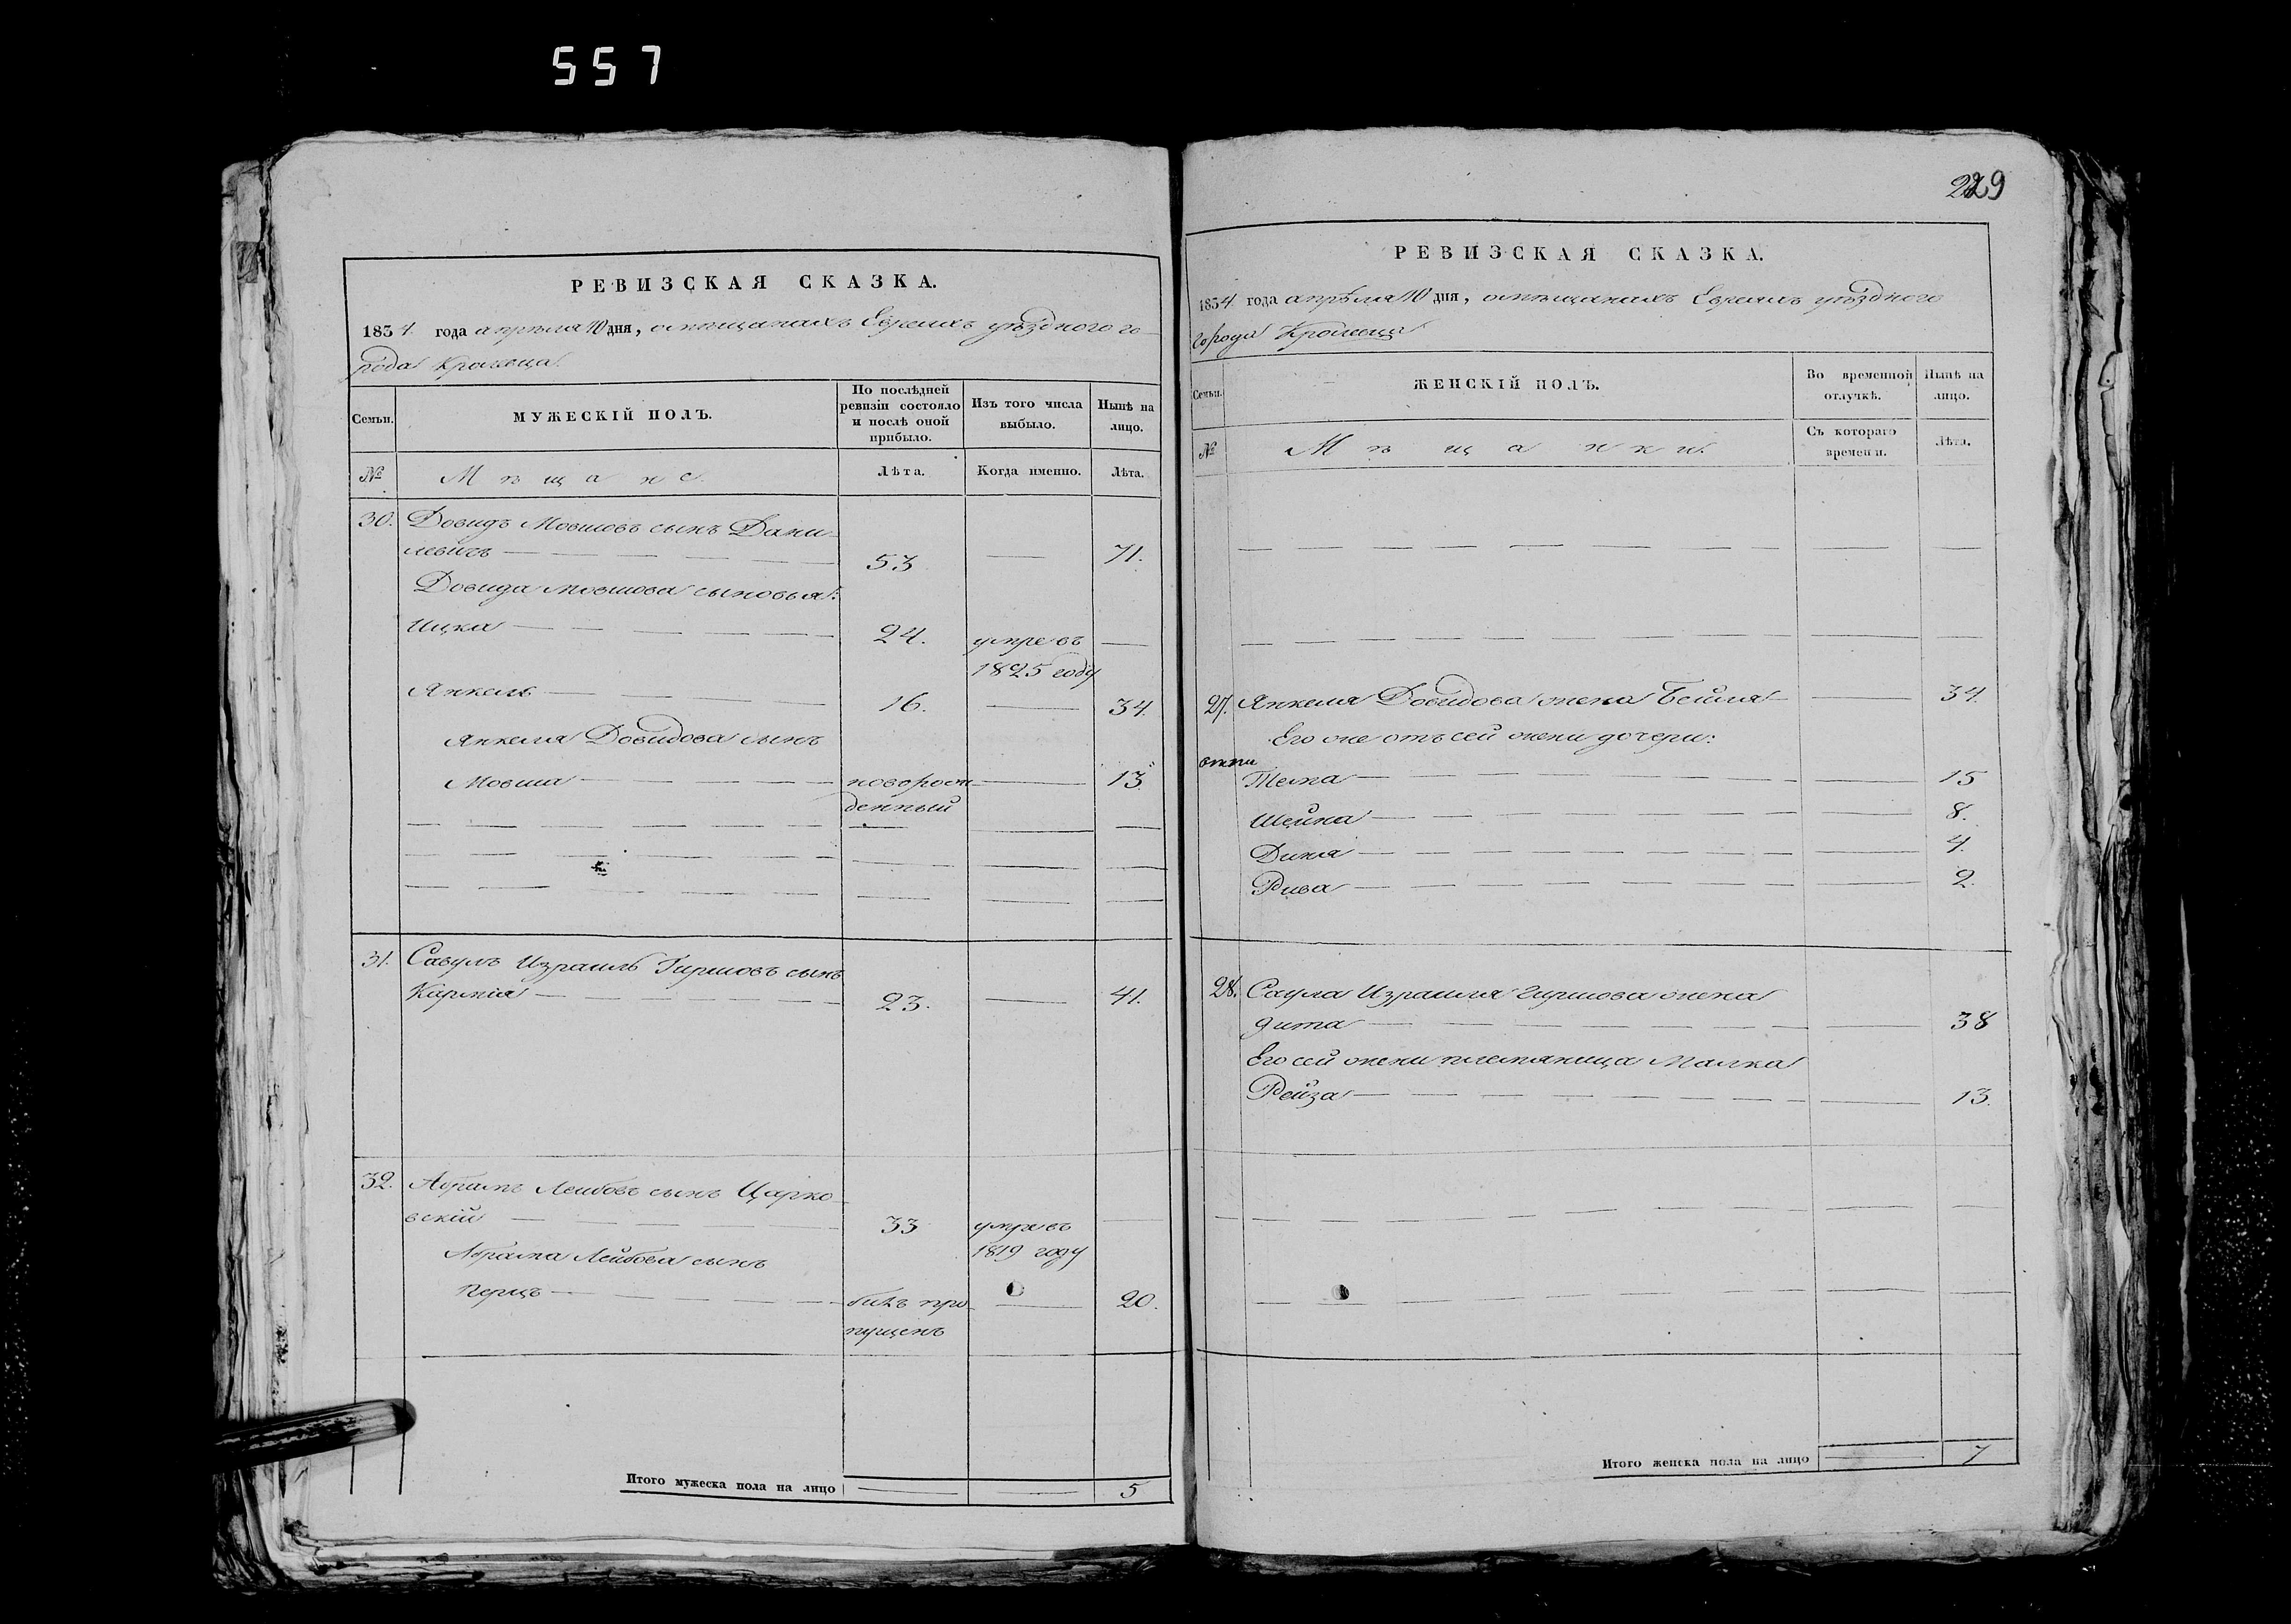 557
РЕВИЗСКАЯ СКАЗКА.
1834. года апрѣля 10 дня, о мѣщанахъ Евреяхъ уѣзднаго го-
рода Кролевца.
Семьи.
МУЖЕСКІЙ ПОЛЪ.
По послѣдней ревизіи состояло и послѣ оной прибыло.
Изъ того числа выбыло.
Нынѣ на лицо.
№
Мѣщане.
Лѣта.
Когда именно.
Лѣта.
30. Довидъ Мовшовъ сынъ Дани-
левичъ 53 71.
Довида Мовшова сыновья:
Ицка 24. умре въ
1825 году
Янкель 16. 34.
Янкеля Довидова сынъ
Мовша новорож- 13
денный
31. Савулъ Израиль Гиршовъ сынъ
23. 41.
32. Абрамъ Лейбовъ сынъ Царко-
вскій 33 умре въ
Абрама Лейбова сынъ 1819 году
Перецъ былъ про- 20.
пущенъ
Итого мужеска пола на лицо 5
229
РЕВИЗСКАЯ СКАЗКА.
1834. года апрѣля 10 дня, о мѣщанахъ Евреяхъ уѣзднаго
города Кролевца
Семьи.
ЖЕНСКІЙ ПОЛЪ.
Во временной отлучкѣ.
Нынѣ на лицо.
№
Мѣщанки.
Съ котораго времени.
Лѣта.
27. Янкеля Довидова жена Бейля 34.
Его же отъ сей жены дочери:
Тема 15
Шейна 8.
Диня 4.
Рива 2.
28. Саула Израиля Гиршова жена
38
Его сей жены племяница Малка
Рейза 13.
Итого женска пола на лицо 7